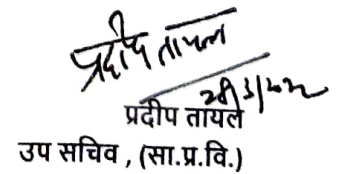 प्रदीप तायल
28/3/2022
प्रदीप तायल
उप सचिव , (सा.प्र.वि.)